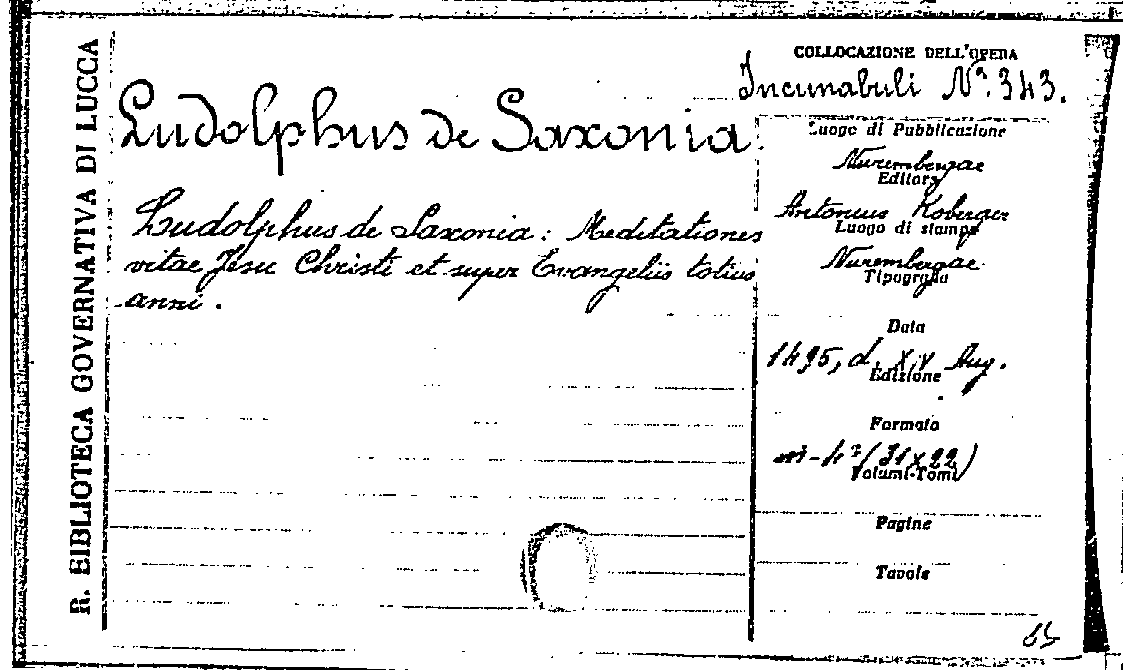 R. BIBLIOTECA GOVERNATIVA DI LUCCA
COLLOCAZIONE DELL'OPERA
Incunabuli Nº. 343.
Ludolphus de Saxonia.
Ludolphus de Saxonia: Meditationes
vitae Jesu Christi et super Evangeliis totius
anni.
Luogo di Pubblicazione
Nurembergae
Editore
Antonius Koberger
Luogo di stampa
Nurembergae
Tipografia
Data
1495, d. XIV Aug.
Edizione
Formato
in-4º (31x22)
Volumi-Tomi
Pagine
Tavole